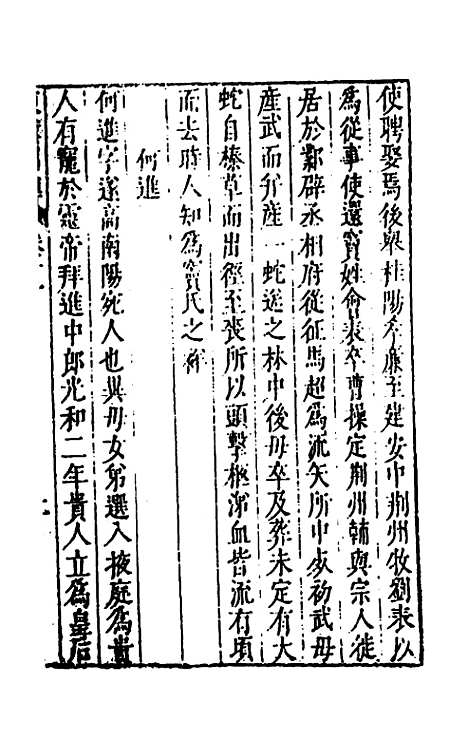 使聘娶焉後舉桂陽孝廉至建安中荆州牧劉表以
為從事使還竇姓會表卒曹操定荆州輔與宗人徙
居於鄴辟丞相府從征馬超為流矢所中死初武母
産武而并産一蛇送之林中後母卒及葬未定有大
蛇自榛草而出徑至喪所以頭擊柩涕血皆流有頃
而去時人知為竇氏之祥
何進
何進字遂高南陽宛人也異母女弟選入掖庭為貴
人有寵於靈帝拜進中郎光和二年貴人立為皇后